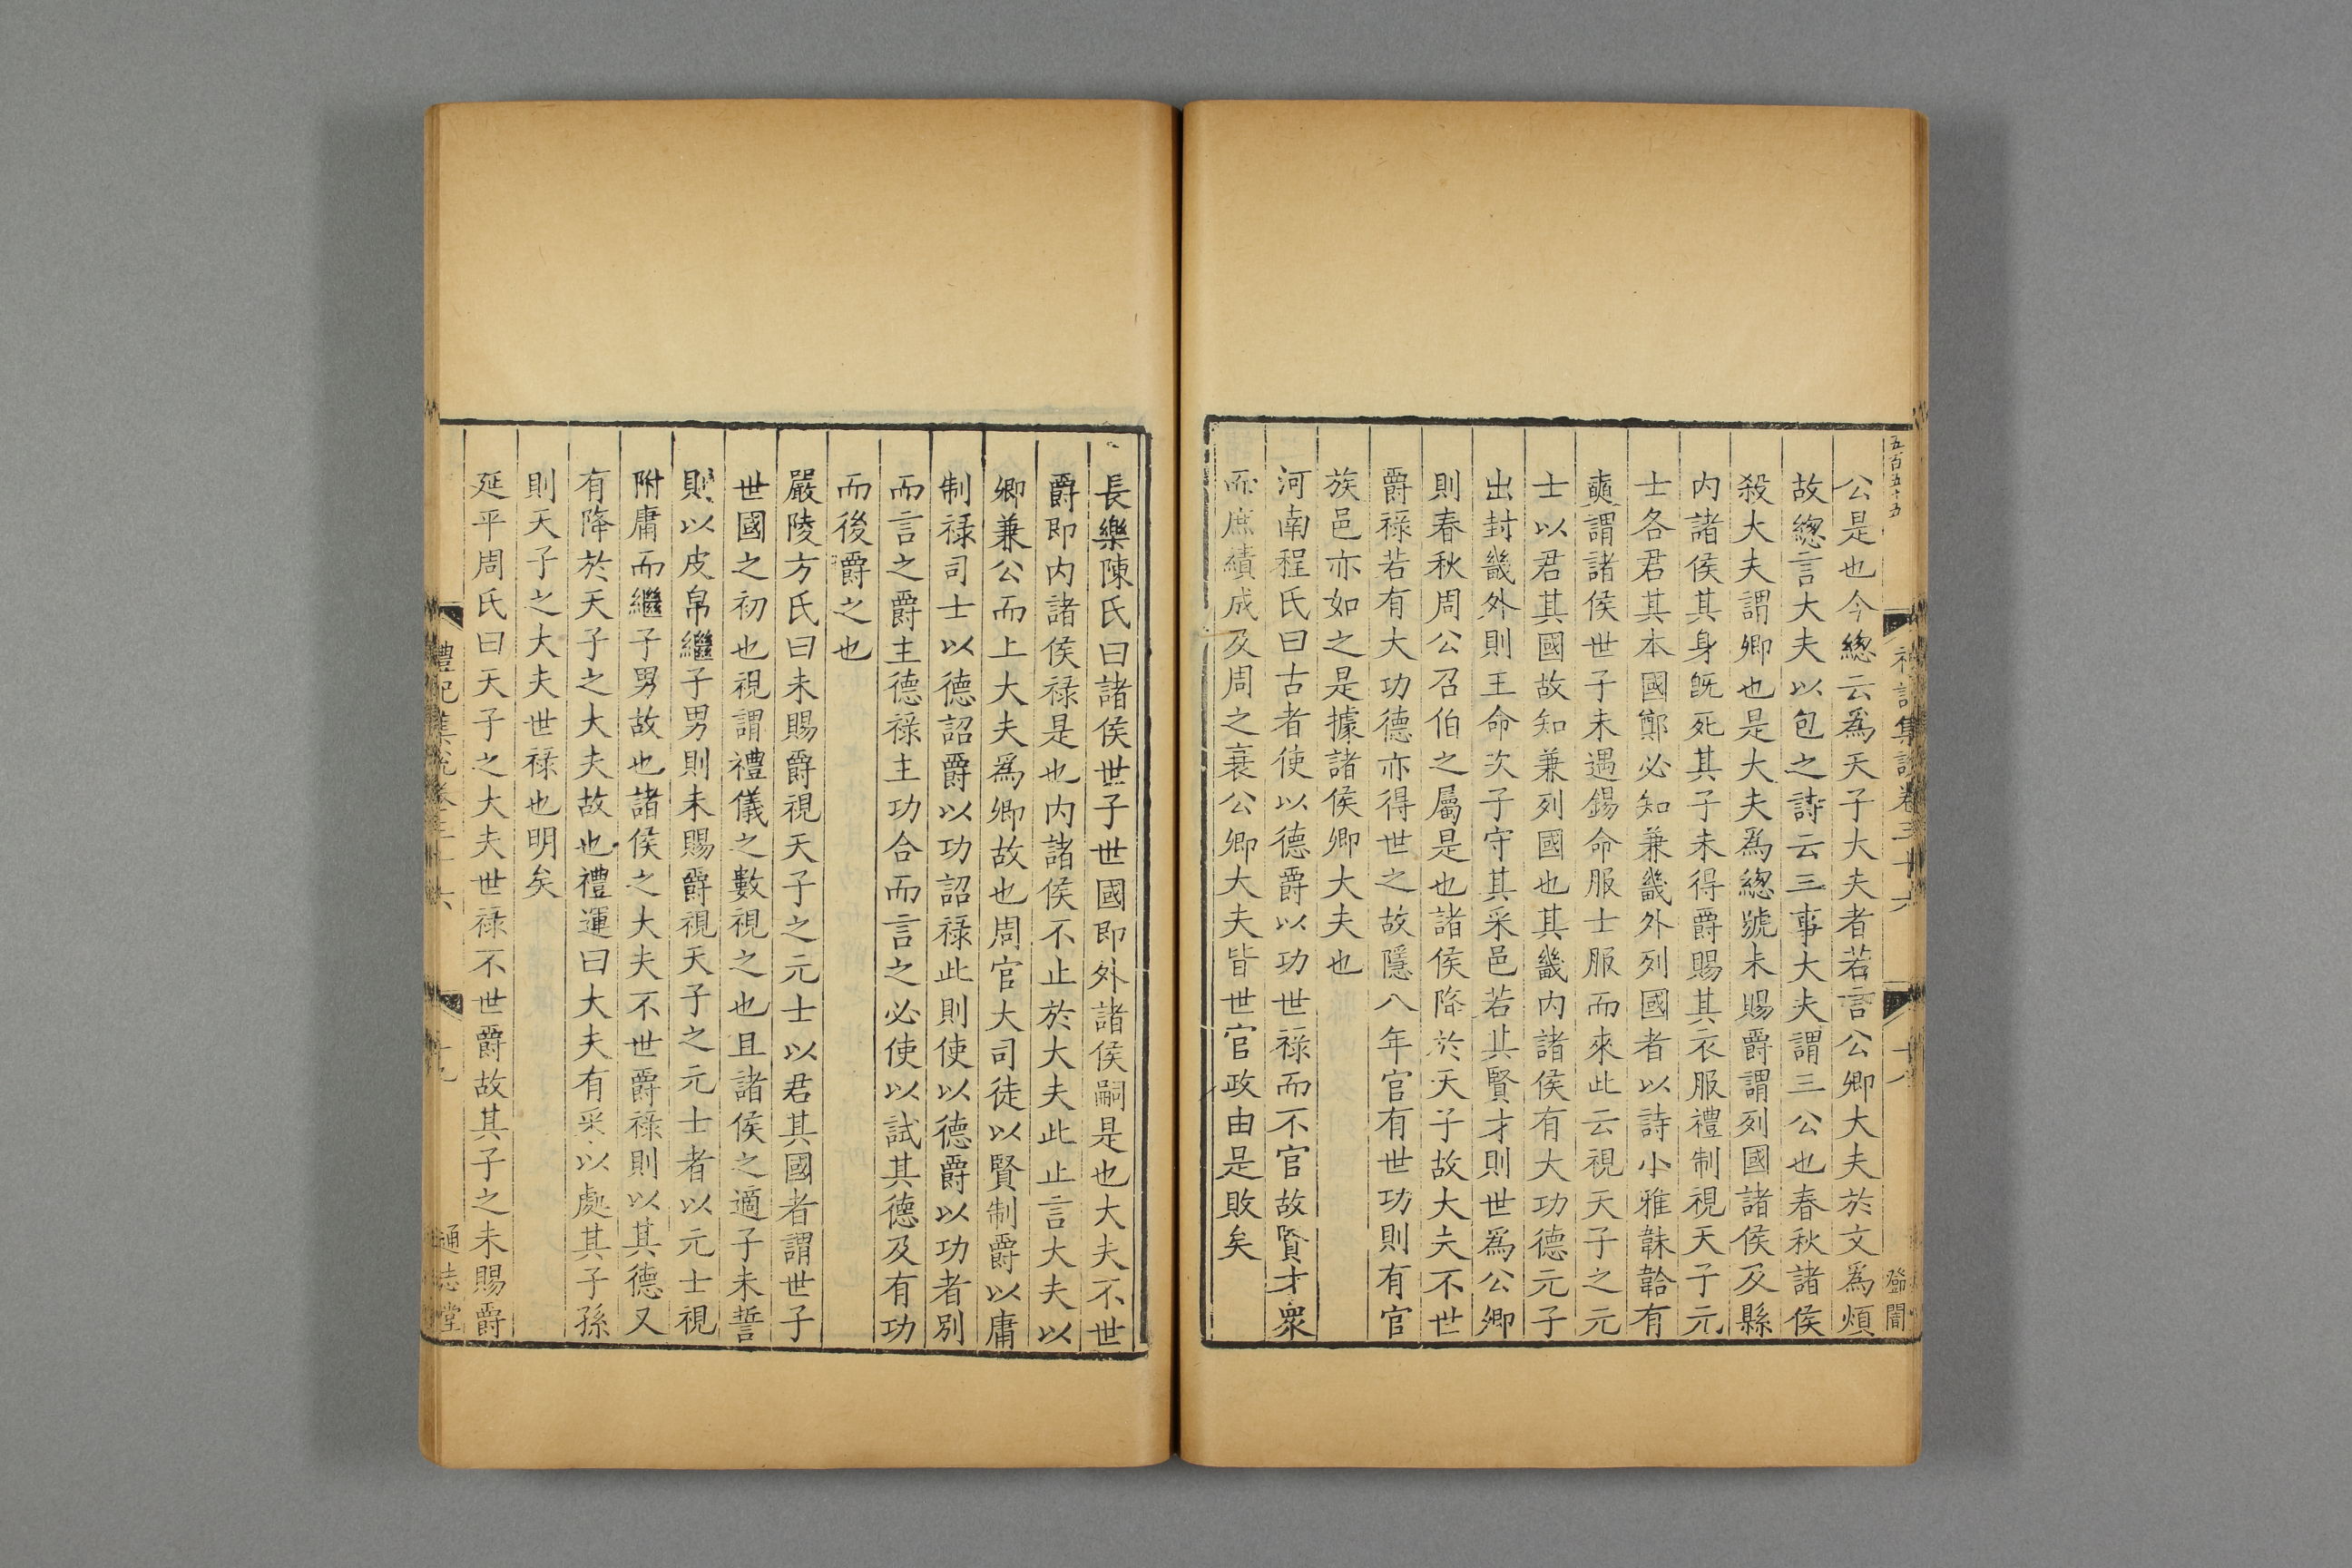 五百五十五
禮記集說卷三十六
十八
鄧闇
公是也今緫云爲天子大夫者若言公卿大夫於文爲煩
故緫言大夫以包之詩云三事大夫謂三公也春秋諸侯
殺大夫謂卿也是大夫爲緫號未賜爵謂列國諸侯及縣
内諸侯其身旣死其子未得爵賜其衣服禮制視天子元
士各君其本國鄭必知兼畿外列國者以詩小雅韎韐有
奭謂諸侯世子未遇錫命服士服而來此云視天子之元
士以君其國故知兼列國也其畿内諸侯有大功德元子
出封畿外則王命次子守其采邑若其賢才則世爲公卿
則春秋周公召伯之屬是也諸侯降於天子故大夫不世
爵祿若有大功德亦得世之故隱八年官有世功則有官
族邑亦如之是據諸侯卿大夫也
河南程氏曰古者使以德爵以功世祿而不官故賢才衆
而庶績成及周之衰公卿大夫皆世官政由是敗矣
長樂陳氏曰諸侯世子世國即外諸侯嗣是也大夫不世
爵即内諸侯祿是也内諸侯不止於大夫此止言大夫以
卿兼公而上大夫爲卿故也周官大司徒以賢制爵以庸
制祿司士以德詔爵以功詔祿此則使以德爵以功者別
而言之爵主德祿主功合而言之必使以試其德及有功
而後爵之也
嚴陵方氏曰未賜爵視天子之元士以君其國者謂世子
世國之初也視謂禮儀之數視之也且諸侯之適子未誓
則以皮帛繼子男則未賜爵視天子之元士者以元士視
附庸而繼子男故也諸侯之大夫不世爵祿則以其德又
有降於天子之大夫故也禮運曰大夫有采以處其子孫
則天子之大夫世祿也明矣
延平周氏曰天子之大夫世祿不世爵故其子之未賜爵
禮記集說卷三十六
十九
通志堂